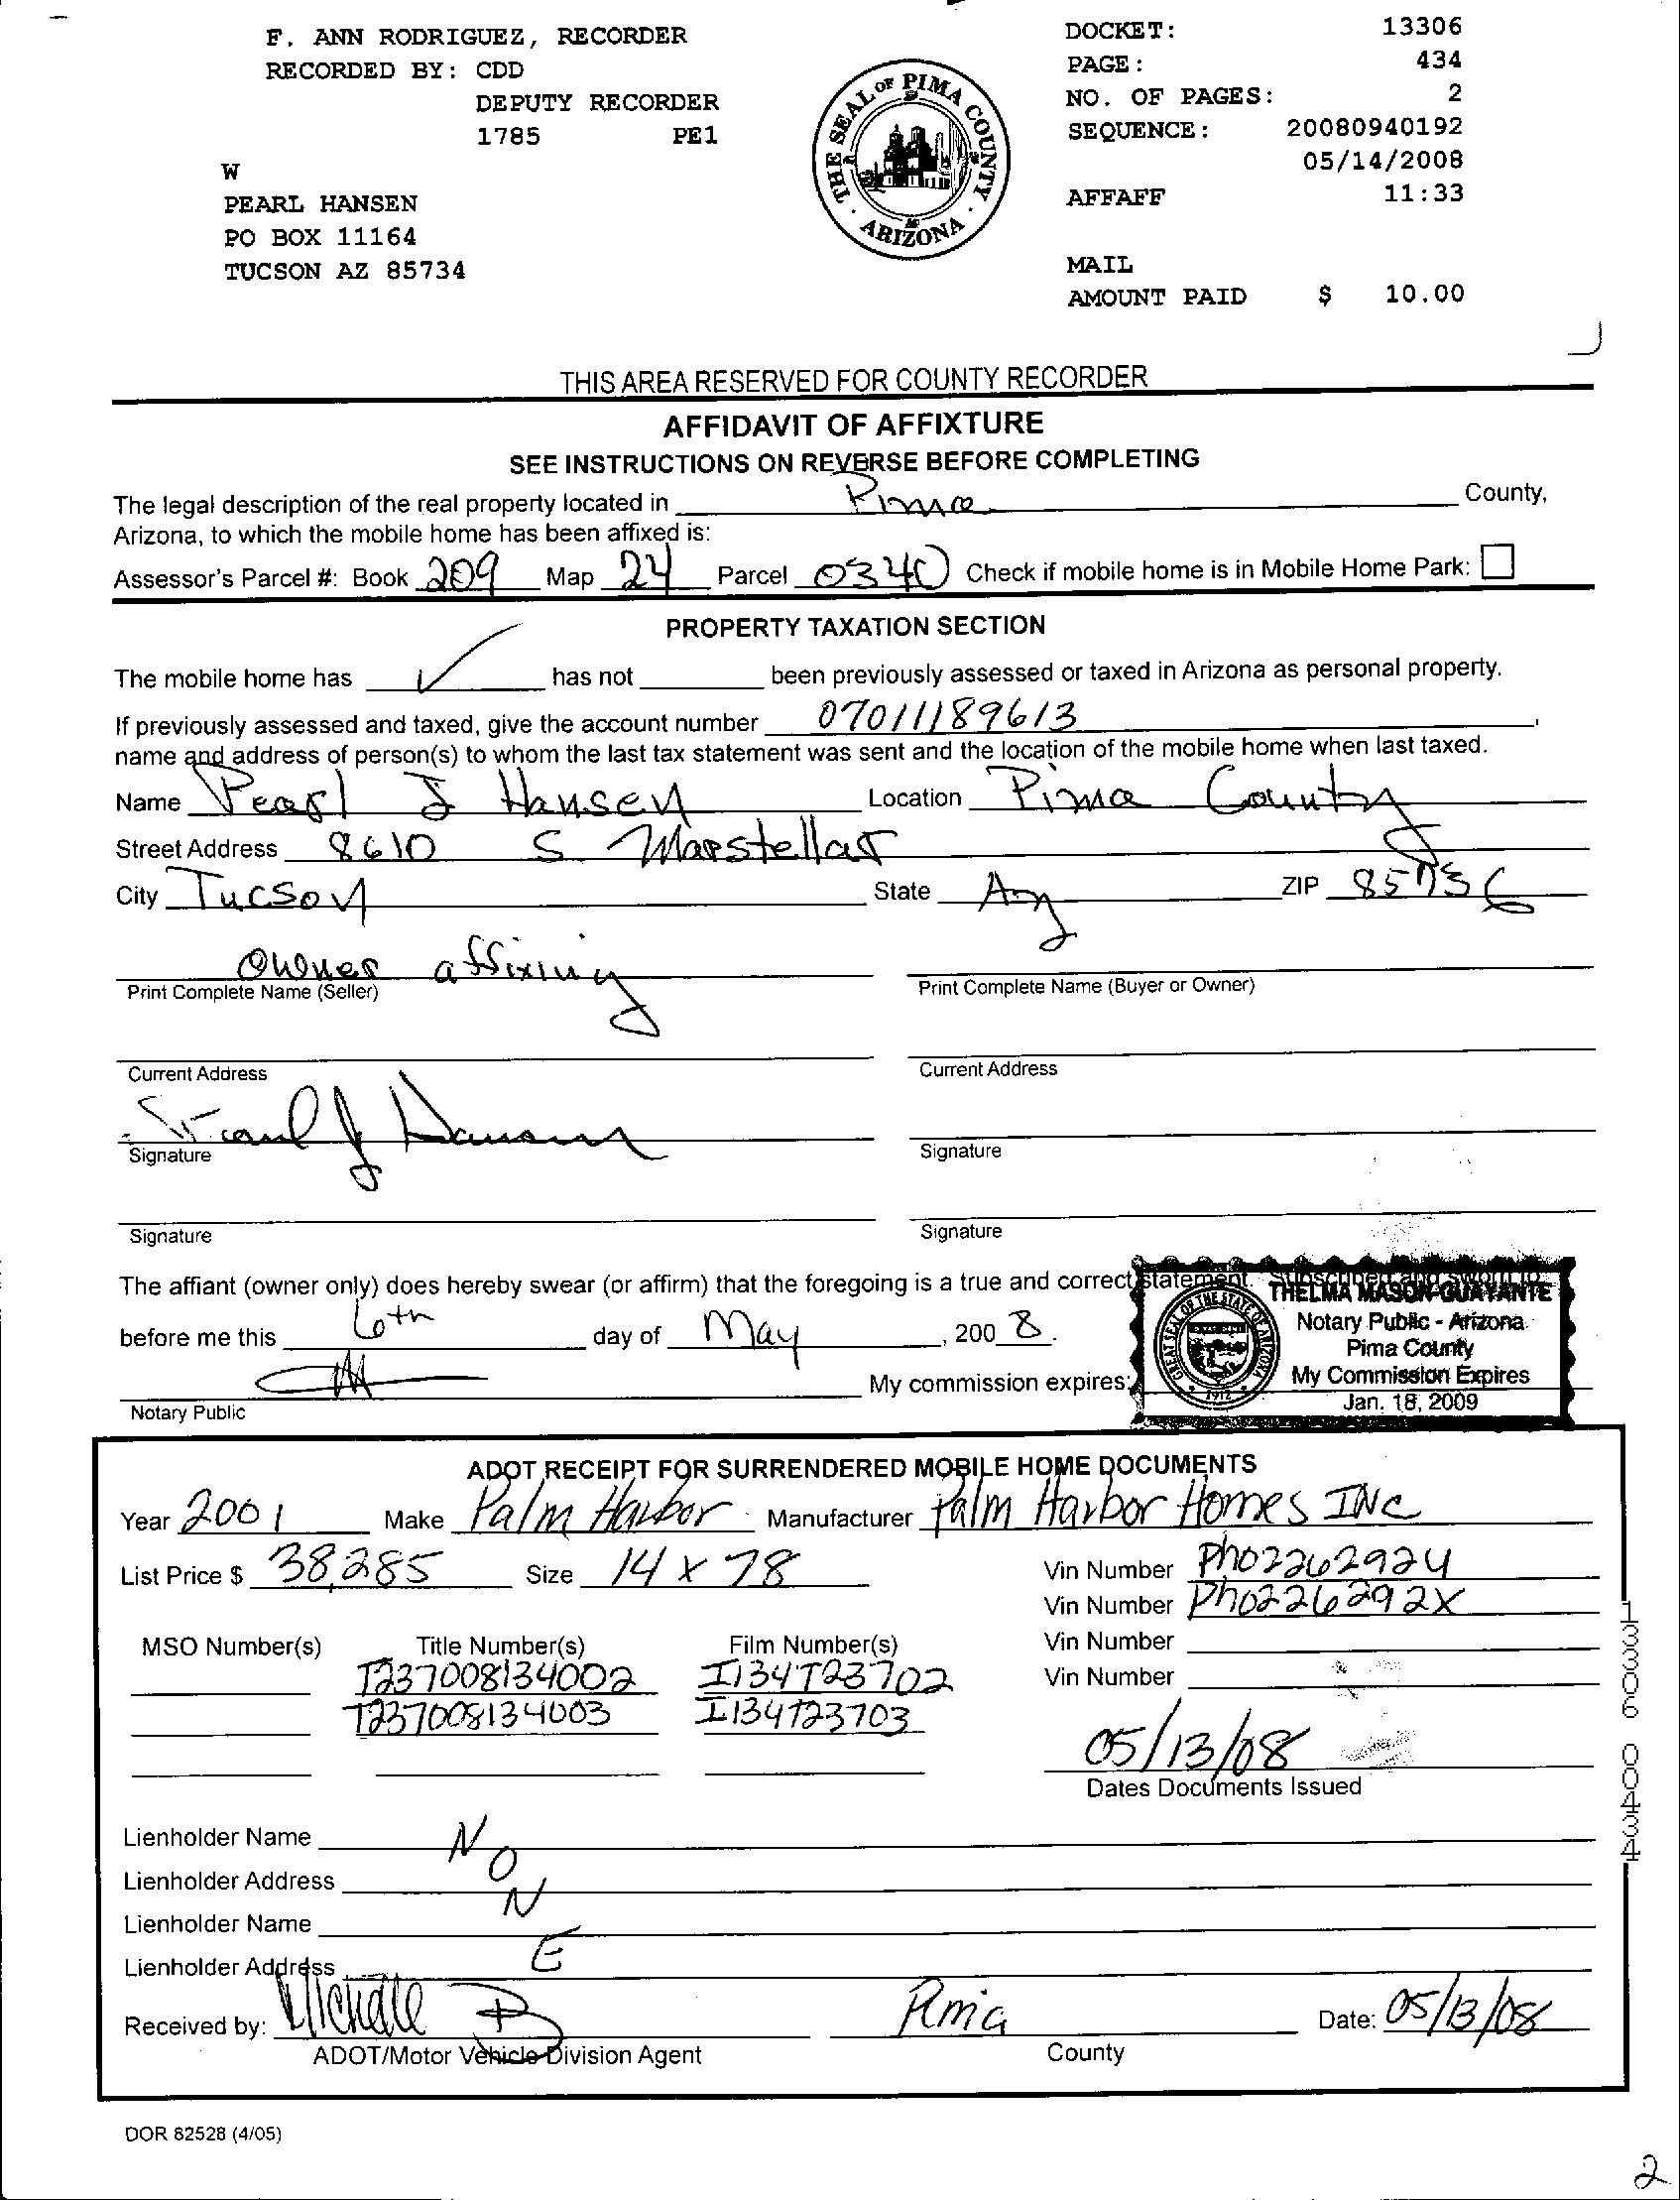 F. ANN RODRIGUEZ, RECORDER
RECORDED BY: CDD
DEPUTY RECORDER
1785 PE1
W
PEARL HANSEN
PO BOX 11164
TUCSON AZ 85734
THE SEAL OF PIMA COUNTY · ARIZONA ·
DOCKET: 13306
PAGE: 434
NO. OF PAGES: 2
SEQUENCE: 20080940192
05/14/2008
AFFAFF 11:33
MAIL
AMOUNT PAID $ 10.00
THIS AREA RESERVED FOR COUNTY RECORDER
AFFIDAVIT OF AFFIXTURE
SEE INSTRUCTIONS ON REVERSE BEFORE COMPLETING
The legal description of the real property located in Pima County,
Arizona, to which the mobile home has been affixed is:
Assessor's Parcel #: Book 209 Map 24 Parcel 0340 Check if mobile home is in Mobile Home Park:
PROPERTY TAXATION SECTION
The mobile home has ✓ has not been previously assessed or taxed in Arizona as personal property.
If previously assessed and taxed, give the account number 07011189613,
name and address of person(s) to whom the last tax statement was sent and the location of the mobile home when last taxed.
Name Pearl J Hansen Location Pima County
Street Address 8610 S Marstellar
City Tucson State Az ZIP 85736
Owner affixing
Print Complete Name (Seller) Print Complete Name (Buyer or Owner)
Current Address Current Address
Pearl J Hansen
Signature Signature
Signature Signature
The affiant (owner only) does hereby swear (or affirm) that the foregoing is a true and correct statement. Subscribed and sworn to
before me this 6th day of May, 200 8.
My commission expires:
Notary Public
GREAT SEAL OF THE STATE OF ARIZONA 1912
THELMA MASON-GUAYANTE
Notary Public - Arizona
Pima County
My Commission Expires
Jan. 18, 2009
ADOT RECEIPT FOR SURRENDERED MOBILE HOME DOCUMENTS
Year 2001 Make Palm Harbor Manufacturer Palm Harbor Homes INC
List Price $ 38,285 Size 14 x 78 Vin Number Ph0226292U
Vin Number Ph0226292X
MSO Number(s) Title Number(s) Film Number(s) Vin Number
T237008134002 I134T23702 Vin Number
T237008134003 I134T23703
05/13/08
Dates Documents Issued
Lienholder Name NONE
Lienholder Address
Lienholder Name
Lienholder Address
Received by: Michelle B Pima Date: 05/13/08
ADOT/Motor Vehicle Division Agent County
13306 00434
DOR 82528 (4/05)
2